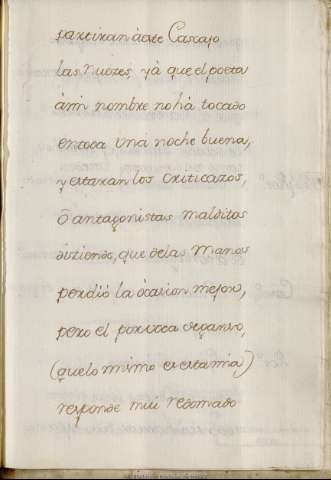 partiran à este Cascajo
las nuezes, yà que el poeta
à mi nombre no hà tocado
en toda Una noche buena,
y estaran los Critìcazos,
ò antagonistas malditos
diziendo, que de las manos
perdiò la òcasion mejor,
pero el por voca de ganso,
(que lo mismo es esta mia)
responde mui redomado